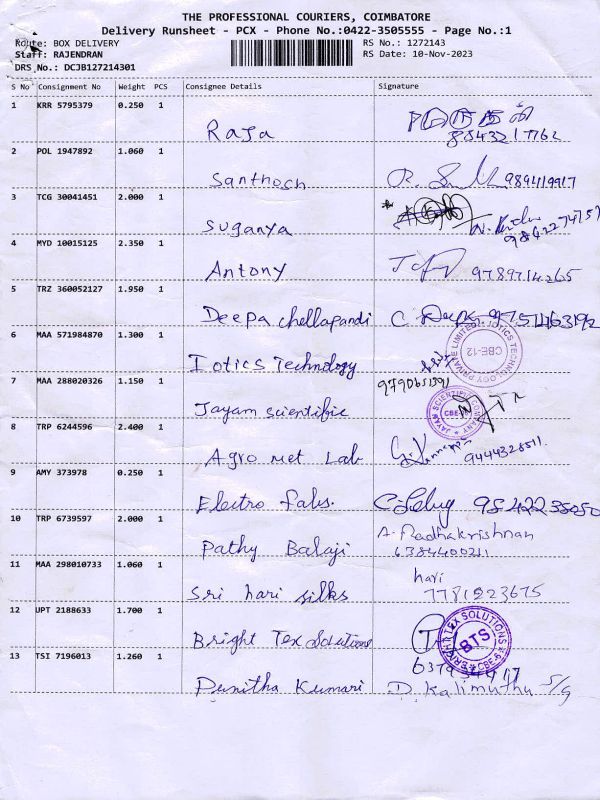 THE PROFESSIONAL COURIERS, COIMBATORE
Delivery Runsheet - PCX - Phone No.:0422-3505555 - Page No.:1
Route: BOX DELIVERY RS No.: 1272143
Staff: RAJENDRAN RS Date: 10-Nov-2023
DRS No.: DCJB127214301
S No Consignment No Weight PCS Consignee Details Signature
1 KRR 5795379 0.250 1
Raja 8843217762
2 POL 1947892 1.060 1
Santhosh 989419917
3 TCG 30041451 2.000 1
Suganya
4 MYD 10015125 2.350 1
Antony 9789714265
5 TRZ 360052127 1.950 1
Deepa chellapandi C. Deepa 9751463192
6 MAA 571984870 1.300 1
Iotics Technology IOTICS TECHNOLOGY PRIVATE LIMITED CBE-12
7 MAA 288020326 1.150 1 9790651591
Jayam scientific JAYAM SCIENTIFIC COMPANY CBE
8 TRP 6244596 2.400 1
Agro met Lab 9444328511
9 AMY 373978 0.250 1
Electro fabs. 9842238050
10 TRP 6739597 2.000 1 A. Radhakrishnan
Pathy Balaji 6384400211
11 MAA 298010733 1.060 1 hari
Sri hari silks 7781223675
12 UPT 2188633 1.700 1
Bright Tex Solutions BRIGHT TEX SOLUTIONS BTS CBE-6
13 TSI 7196013 1.260 1
Punitha Kumari D. Kalimuthu S/g